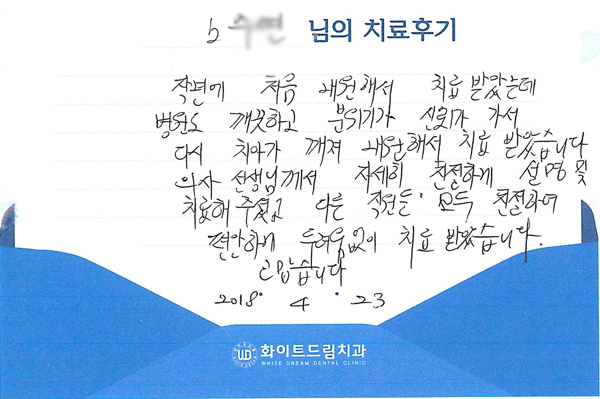 님의 치료후기
작년에 처음 내원해서 치료 받았는데
병원도 깨끗하고 분위기가 신뢰가 가서
다시 치아가 깨져 내원해서 치료 받았습니다
의사 선생님께서 자세히 친절하게 설명 및
치료해 주셨고 다른 직원들 모두 친절하여
편안하게 두려움없이 치료 받았습니다.
고맙습니다
2018. 4. 23
WD 화이트드림치과
WHITE DREAM DENTAL CLINIC